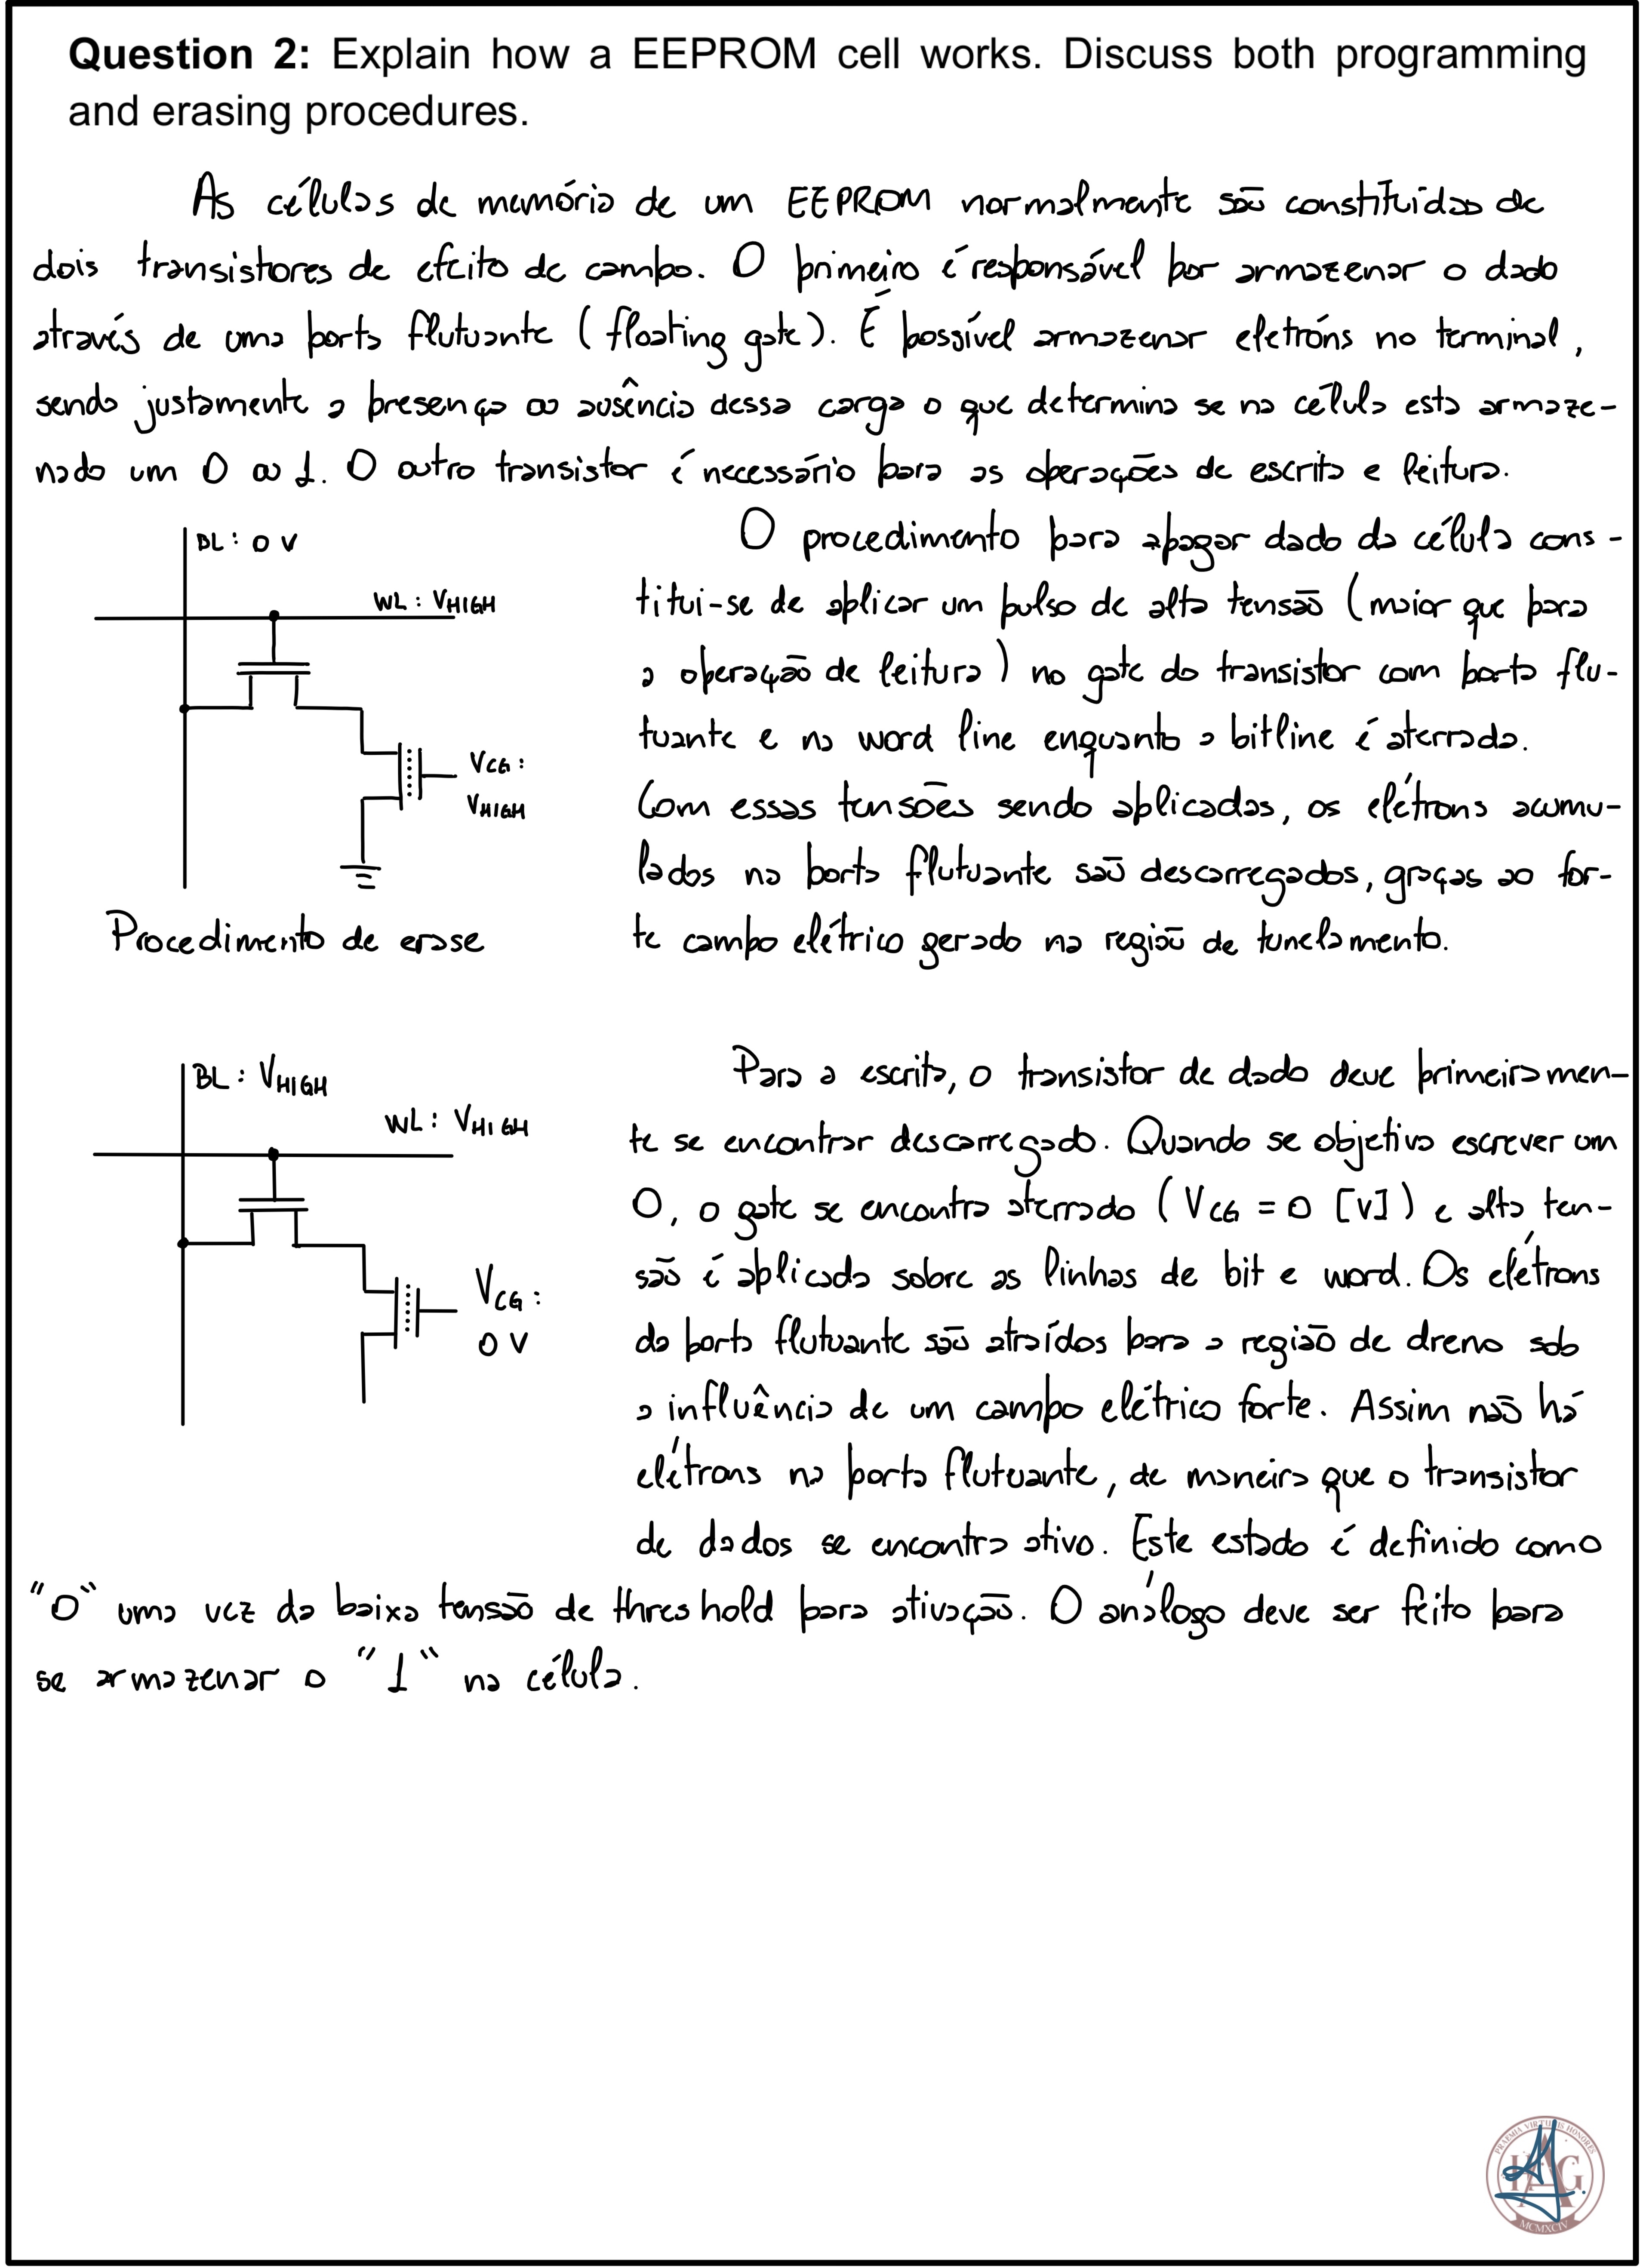 Question 2: Explain how a EEPROM cell works. Discuss both programming
and erasing procedures.
As células de memória de um EEPROM normalmente são constituídas de
dois transistores de efeito de campo. O primeiro é responsável por armazenar o dado
através de uma porta flutuante (floating gate). É possível armazenar eletróns no terminal,
sendo justamente a presença ou ausência dessa carga o que determina se na célula esta armaze-
nado um 0 ou 1. O outro transistor é necessário para as operações de escrita e leitura.
BL: 0 V
WL: VHIGH
VCG:
VHIGH
Procedimento de erase
O procedimento para apagar dado da célula cons-
titui-se de aplicar um pulso de alta tensão (maior que para
a operação de leitura) no gate do transistor com porta flu-
tuante e na word line enquanto a bitline é aterrada.
Com essas tensões sendo aplicadas, os elétrons acumu-
lados na porta flutuante são descarregados, graças ao for-
te campo elétrico gerado na região de tunelamento.
BL: VHIGH
WL: VHIGH
VCG:
0 V
Para a escrita, o transistor de dado deve primeiramen-
te se encontrar descarregado. Quando se objetiva escrever um
0, o gate se encontra aterrado (VCG = 0 [V]) e alta ten-
são é aplicada sobre as linhas de bit e word. Os elétrons
da porta flutuante são atraídos para a região de dreno sob
a influência de um campo elétrico forte. Assim não há
elétrons na porta flutuante, de maneira que o transistor
de dados se encontra ativo. Este estado é definido como
"0" uma vez da baixa tensão de threshold para ativação. O análogo deve ser feito para
se armazenar o "1" na célula.
PRAEMIA VIRTUTIS HONORES
MCMXCIV